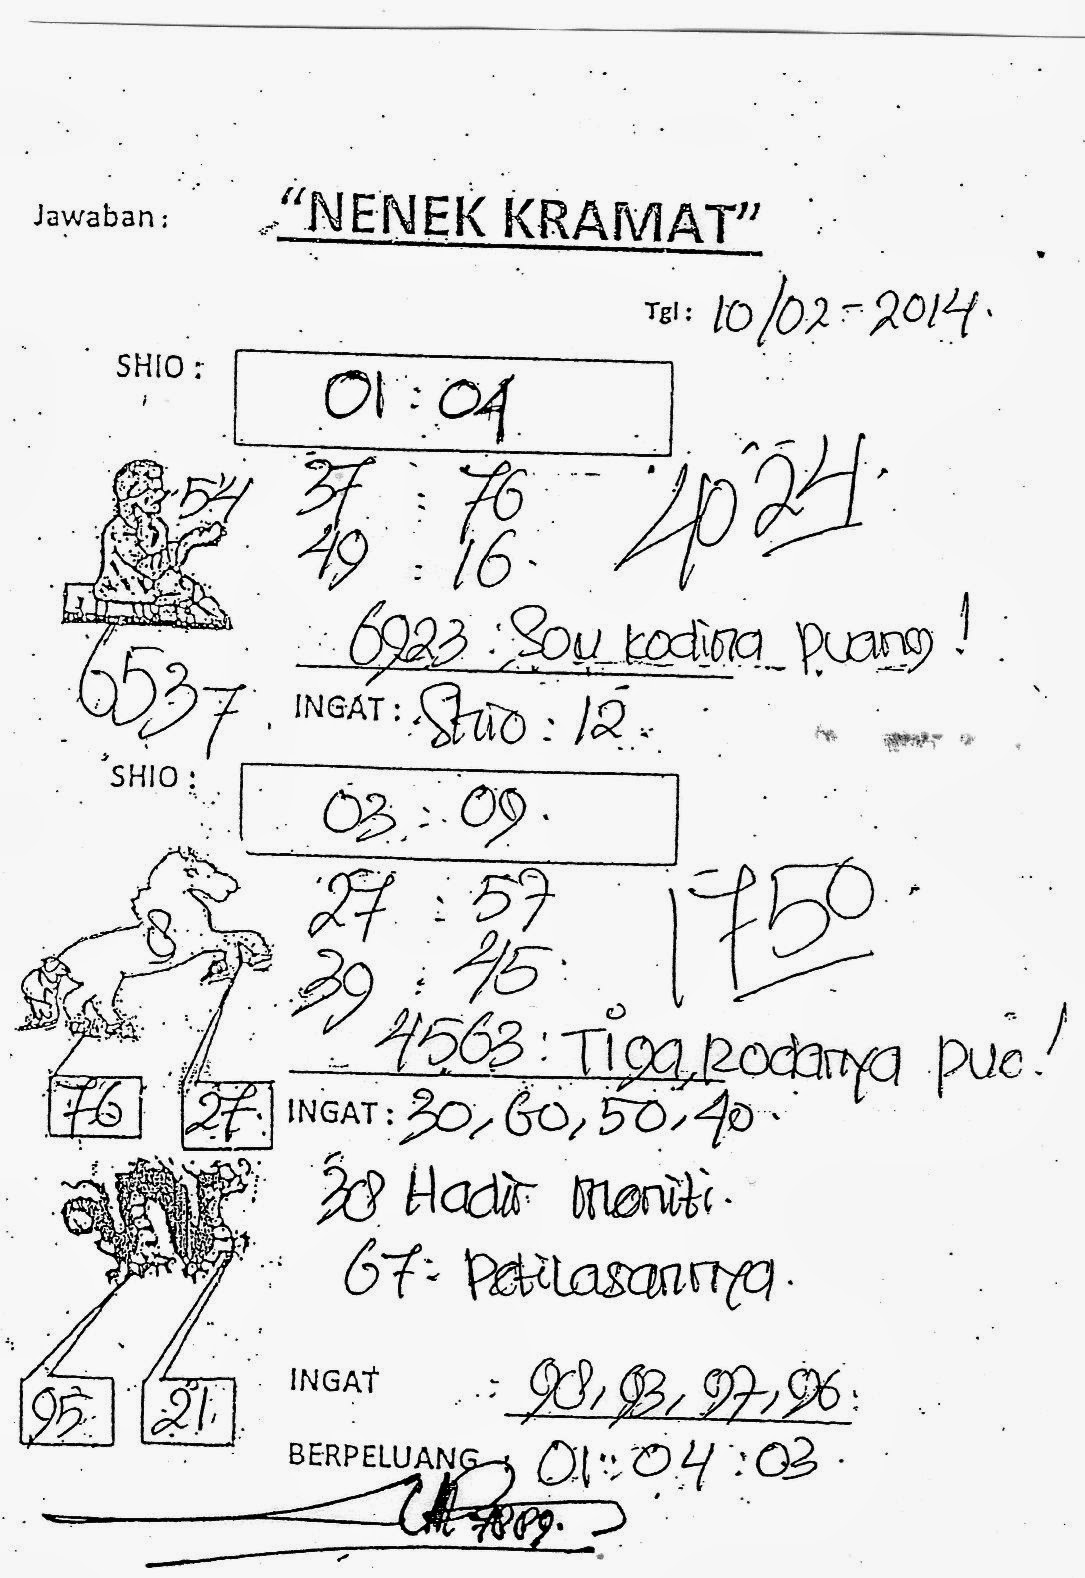 Jawaban: "NENEK KRAMAT"
Tgl: 10/02-2014.
SHIO: 01:04
54 37 : 76 4024.
49 : 16.
6923: Sou kodina puang!
6537 INGAT: Shio: 12.
SHIO: 03:09.
8 27 : 57 1750.
39 : 45.
4563: Tiga, rodanya pua!
76 27. INGAT: 30, 60, 50, 40.
38 Hadir moniti.
67: Petilasannya.
95 21. INGAT : 98, 93, 97, 96.
BERPELUANG: 01:04:03.
7889.